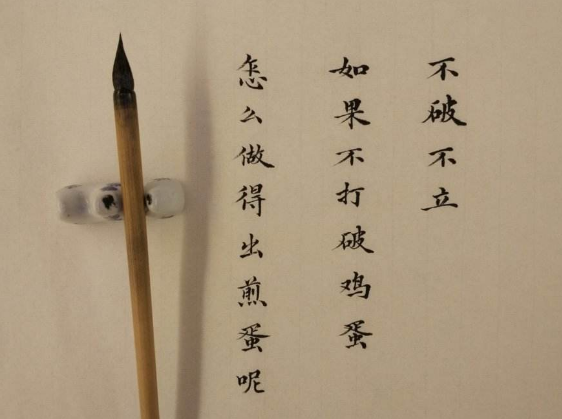 不破不立
如果不打破鸡蛋
怎么做得出煎蛋呢